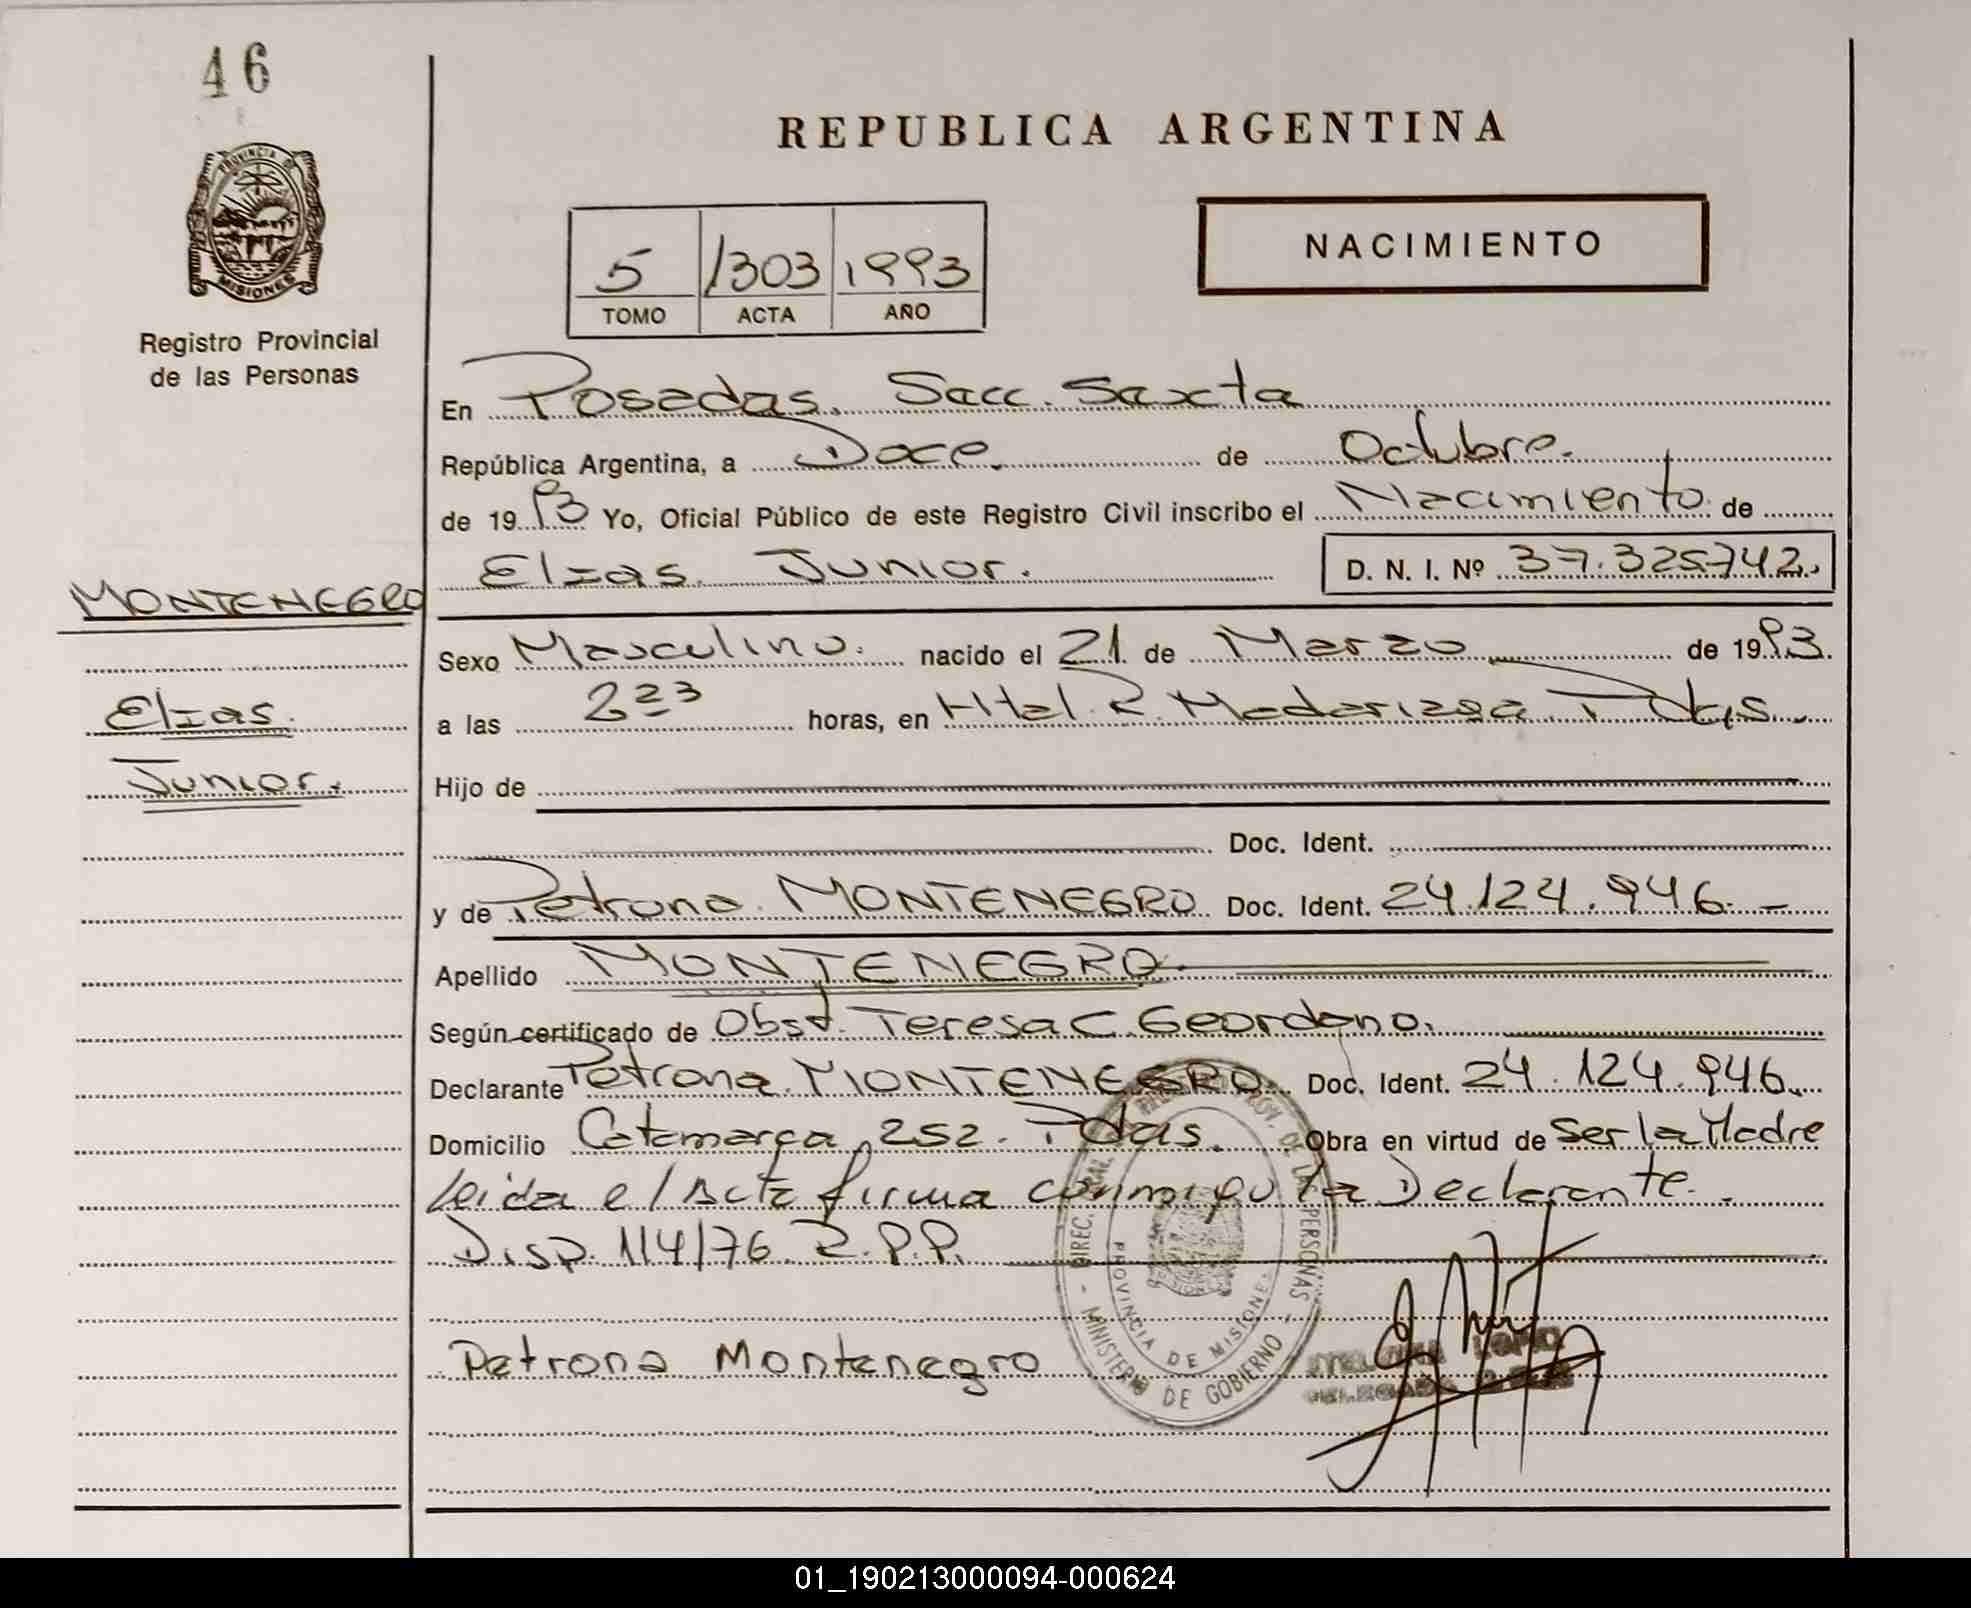 46
REPUBLICA ARGENTINA
PROVINCIA D
MISIONES
Registro Provincial
de las Personas
5 1303 1993
TOMO ACTA AÑO
NACIMIENTO
En Posadas. Secc. Sexta
República Argentina, a Doce. de Octubre.
de 19 93 Yo, Oficial Público de este Registro Civil inscribo el Nacimiento de
Elias Junior. D. N. I. Nº 37.325.742.
MONTENEGRO
Sexo Masculino. nacido el 21 de Marzo de 1993.
Elias.
a las 2 23 horas, en Htal. R. Madariaga Pdas.
Junior.
Hijo de
Doc. Ident.
y de Petrona MONTENEGRO Doc. Ident. 24.124.946.-
Apellido MONTENEGRO
Según certificado de Obst. Teresa C. Geordano.
Declarante Petrona MONTENEGRO Doc. Ident. 24.124.946.
Domicilio Catamarca 252. Pdas. Obra en virtud de Ser la Madre
leida el Acta firma conmigo la Declarante.
Disp. 114/76 R.P.P.
PROVINCIA DE MISIONES
MINISTERIO DE GOBIERNO
Petrona Montenegro
01_190213000094-000624